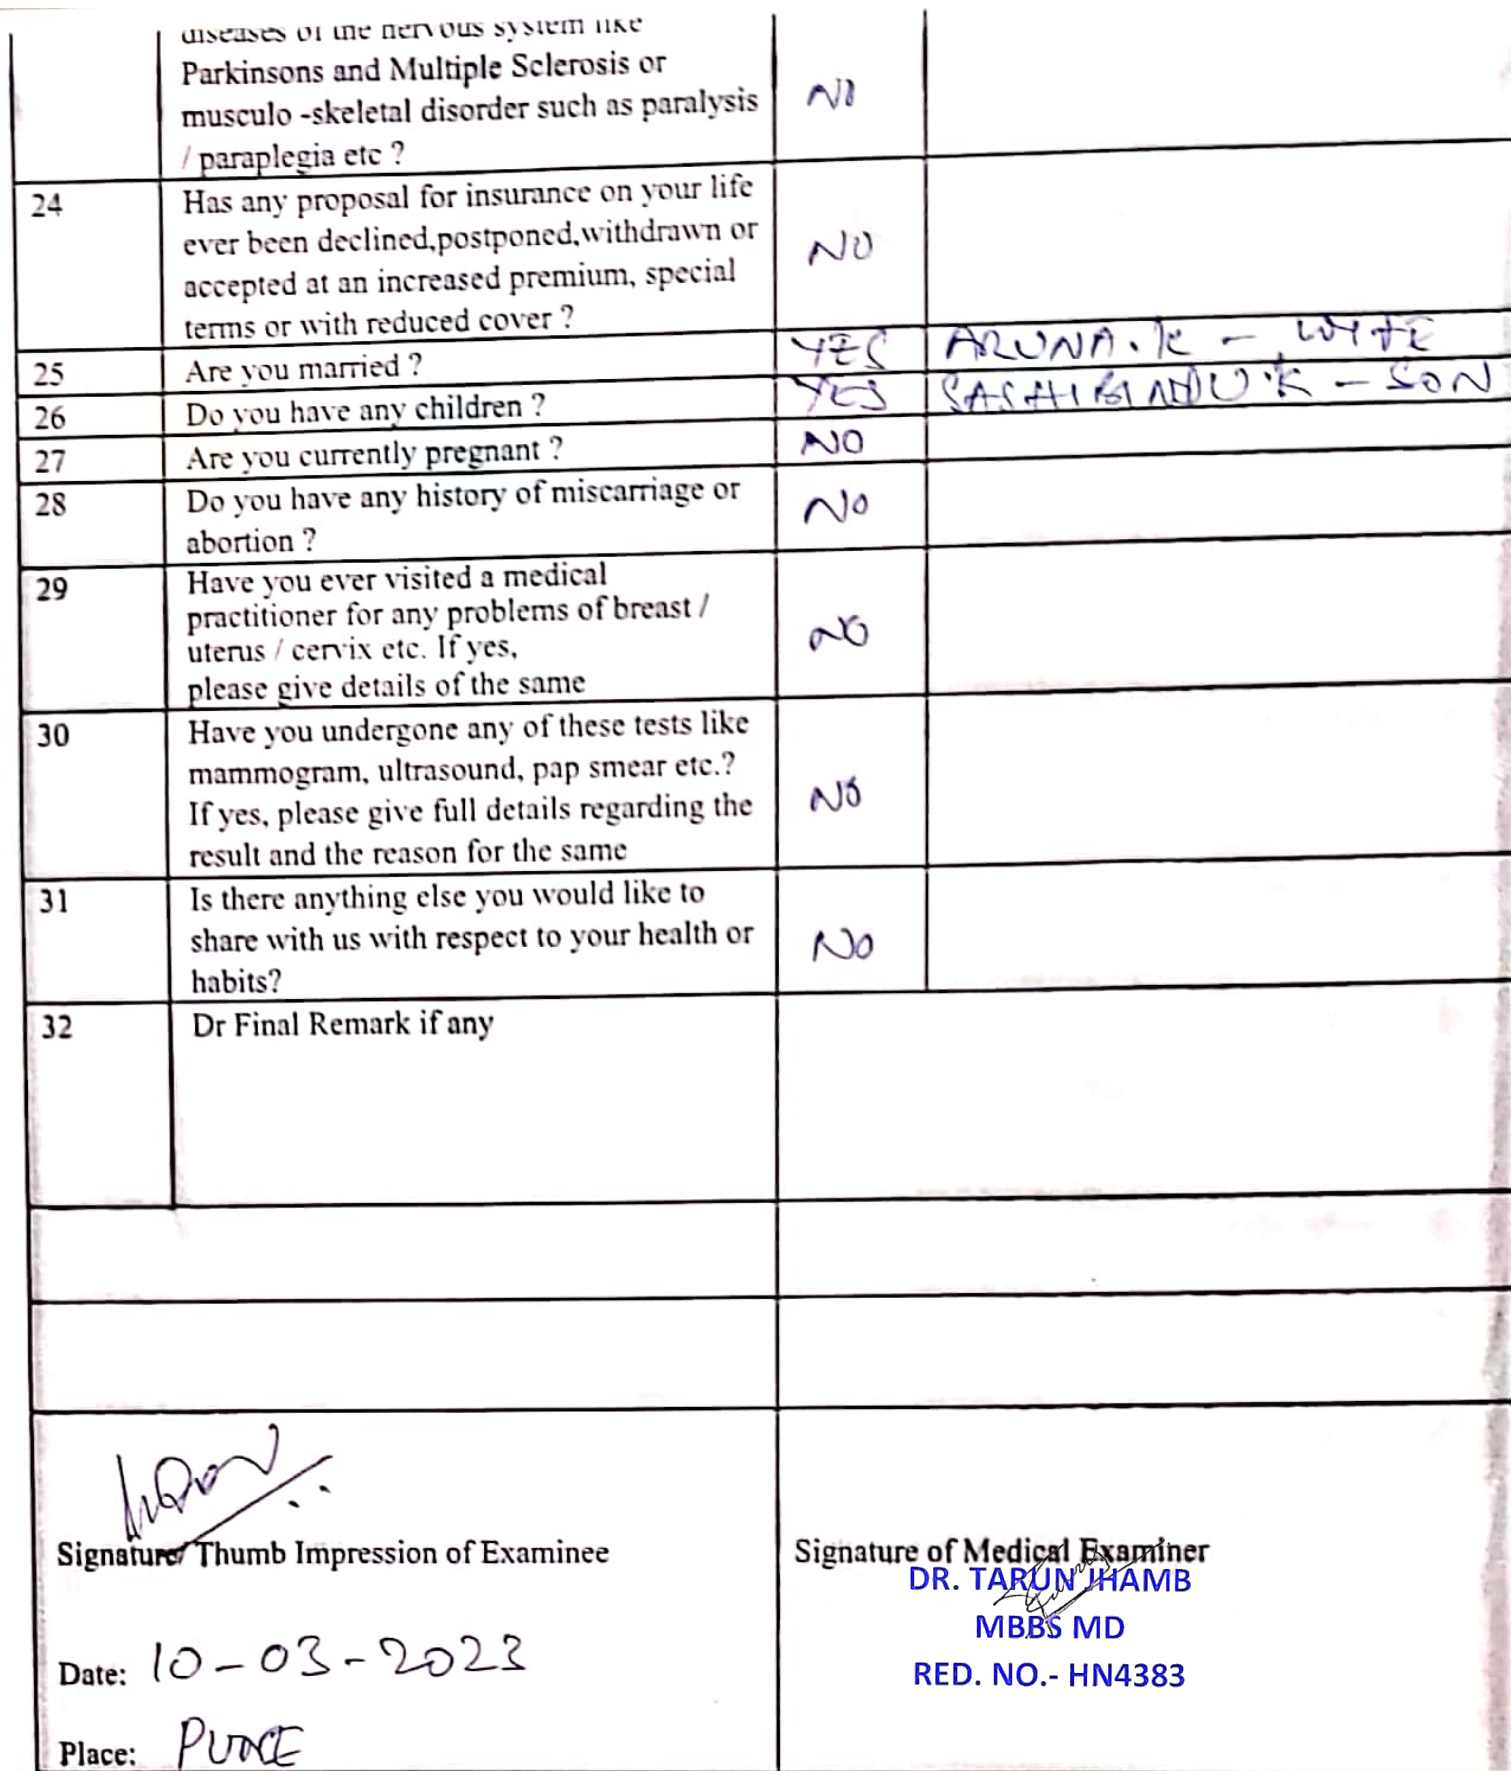 diseases of the nervous system like
Parkinsons and Multiple Sclerosis or
musculo -skeletal disorder such as paralysis
/ paraplegia etc ?
NO
24
Has any proposal for insurance on your life
ever been declined,postponed,withdrawn or
accepted at an increased premium, special
terms or with reduced cover ?
NO
25 Are you married ? YES ARUNA.K - WIFE
26 Do you have any children ? YES SASHIBINDU.K - SON
27 Are you currently pregnant ? NO
28 Do you have any history of miscarriage or
abortion ?
NO
29 Have you ever visited a medical
practitioner for any problems of breast /
uterus / cervix etc. If yes,
please give details of the same
NO
30 Have you undergone any of these tests like
mammogram, ultrasound, pap smear etc.?
If yes, please give full details regarding the
result and the reason for the same
NO
31 Is there anything else you would like to
share with us with respect to your health or
habits?
NO
32 Dr Final Remark if any
Signature/ Thumb Impression of Examinee
Date: 10-03-2023
Place: PUNE
Signature of Medical Examiner
DR. TARUN JHAMB
MBBS MD
RED. NO.- HN4383